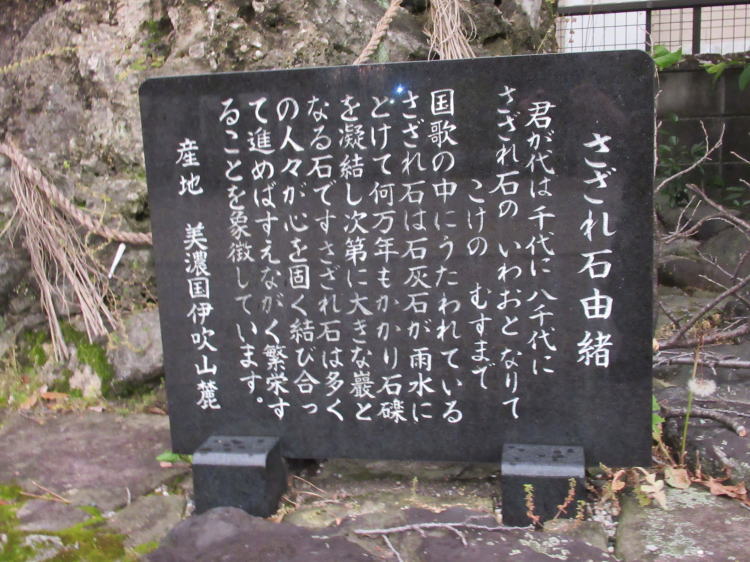 さざれ石由緒
君が代は 千代に 八千代に
さざれ石の いわおと なりて
こけの むすまで
国歌の中にうたわれている
さざれ石は石灰石が雨水に
とけて何万年もかかり石礫
を凝結し次第に大きな巌と
なる石です さざれ石は多く
の人々が心を固く結び合っ
て進めばすえながく繁栄す
ることを象徴しています。
産地 美濃国伊吹山麓